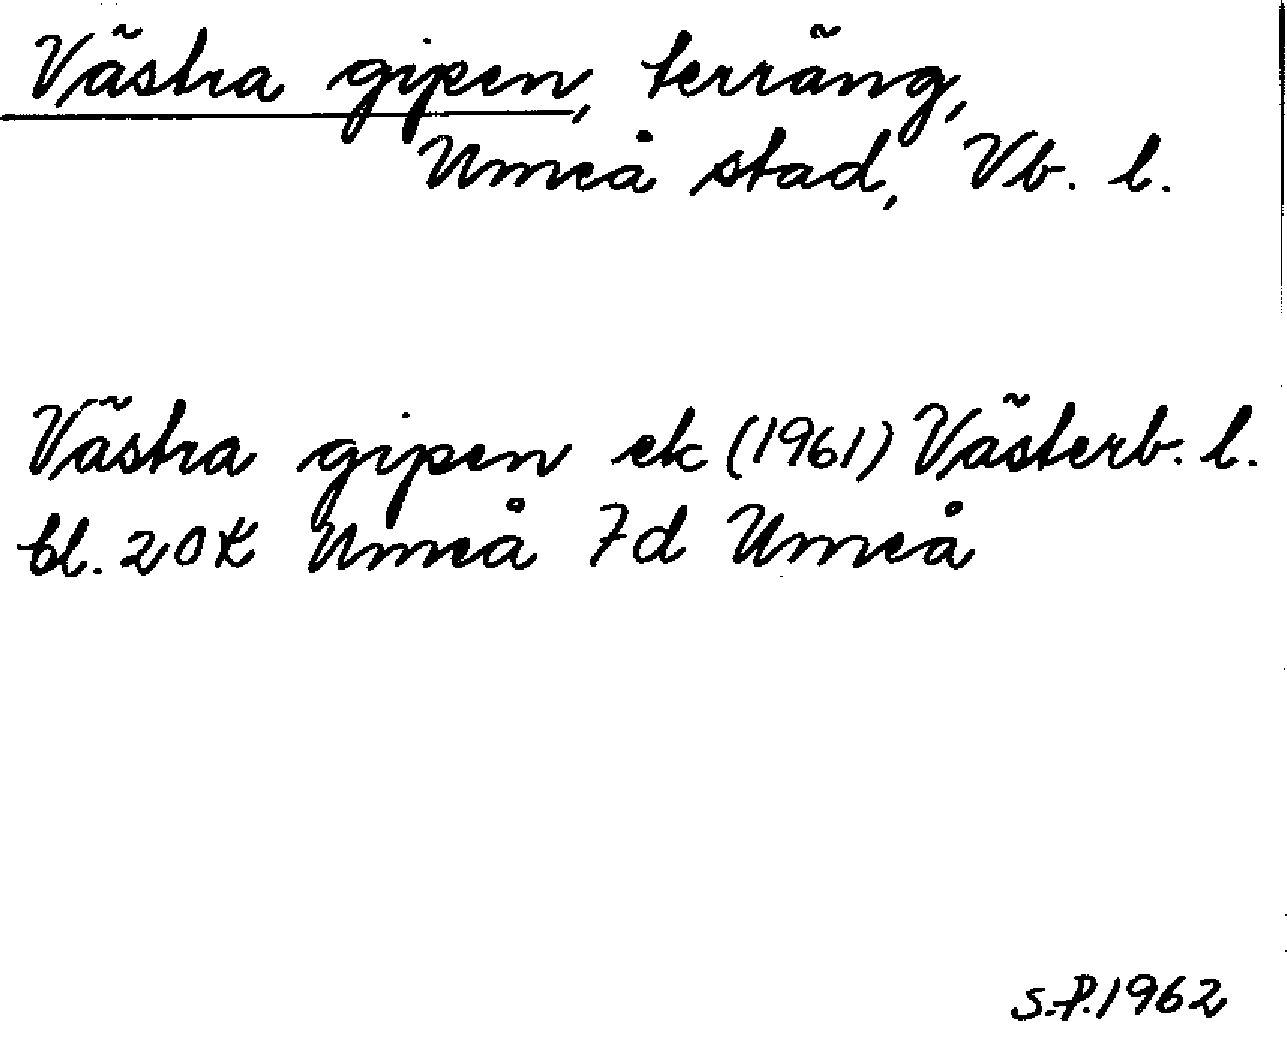 Västra gipen, terräng,
Umeå stad, Vb. l.
Västra gipen ek (1961) Västerb. l.
bl. 20K Umeå 7d Umeå
S.P. 1962